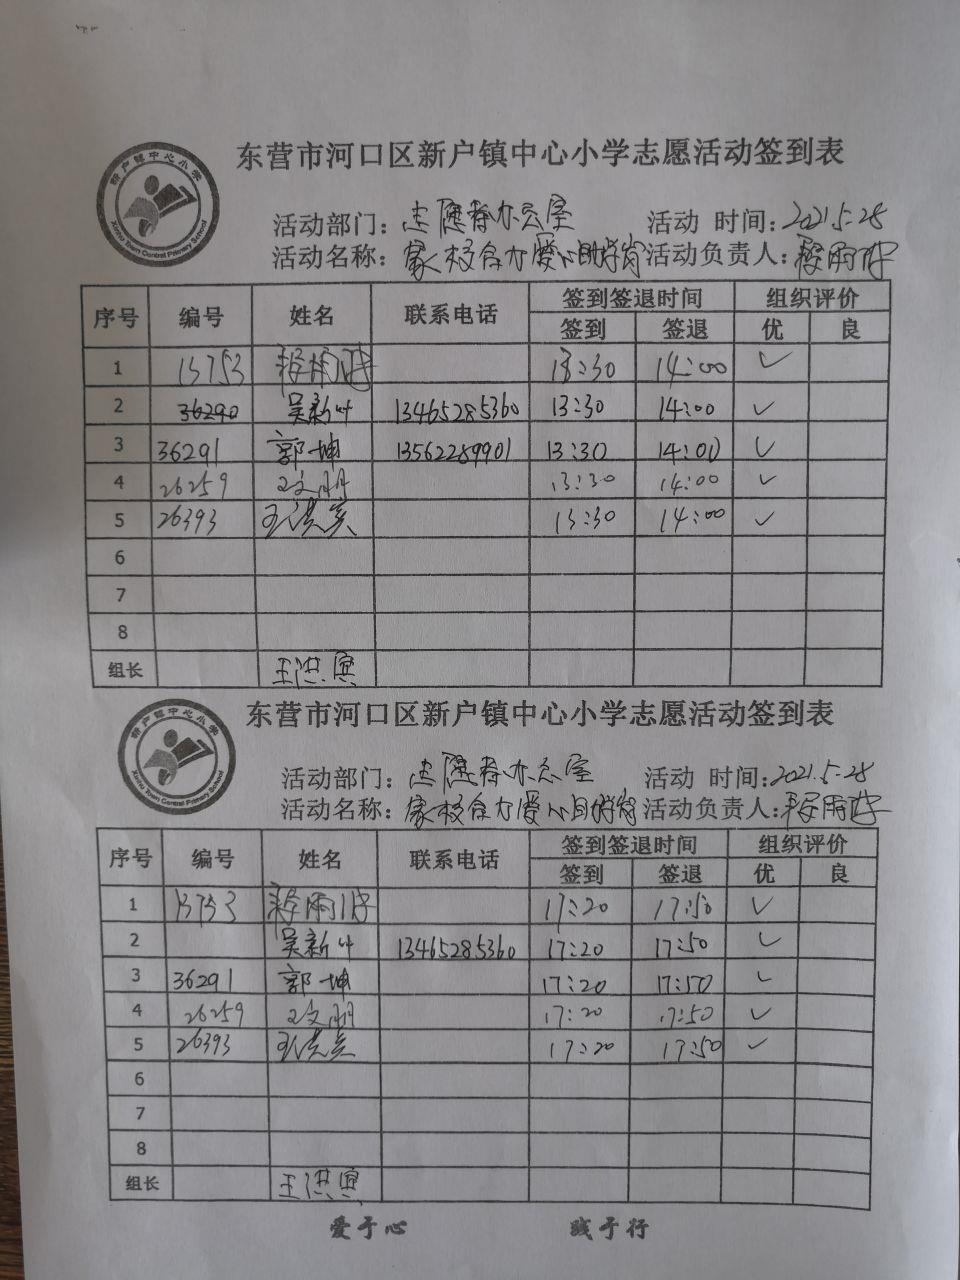 新户镇中心小学
Xinhu Town Central Primary School
东营市河口区新户镇中心小学志愿活动签到表
活动部门：志愿者办公室 活动 时间：2021.5.28
活动名称：家校合力爱心助学岗 活动负责人：
序号 编号 姓名 联系电话 签到签退时间 组织评价
签到 签退 优 良
1 15753 13:30 14:00 ✓
2 36290 吴新叶 13465285360 13:30 14:00 ✓
3 36291 郭坤 13562289901 13:30 14:00 ✓
4 26259 13:30 14:00 ✓
5 26393 王洪宾 13:30 14:00 ✓
6
7
8
组长 王洪宾
新户镇中心小学
Xinhu Town Central Primary School
东营市河口区新户镇中心小学志愿活动签到表
活动部门：志愿者办公室 活动 时间：2021.5.28
活动名称：家校合力爱心助学岗 活动负责人：
序号 编号 姓名 联系电话 签到签退时间 组织评价
签到 签退 优 良
1 15753 17:20 17:50 ✓
2 吴新叶 13465285360 17:20 17:50 ✓
3 36291 郭坤 17:20 17:50 ✓
4 26259 17:20 17:50 ✓
5 26393 王洪宾 17:20 17:50 ✓
6
7
8
组长 王洪宾
爱于心 践于行